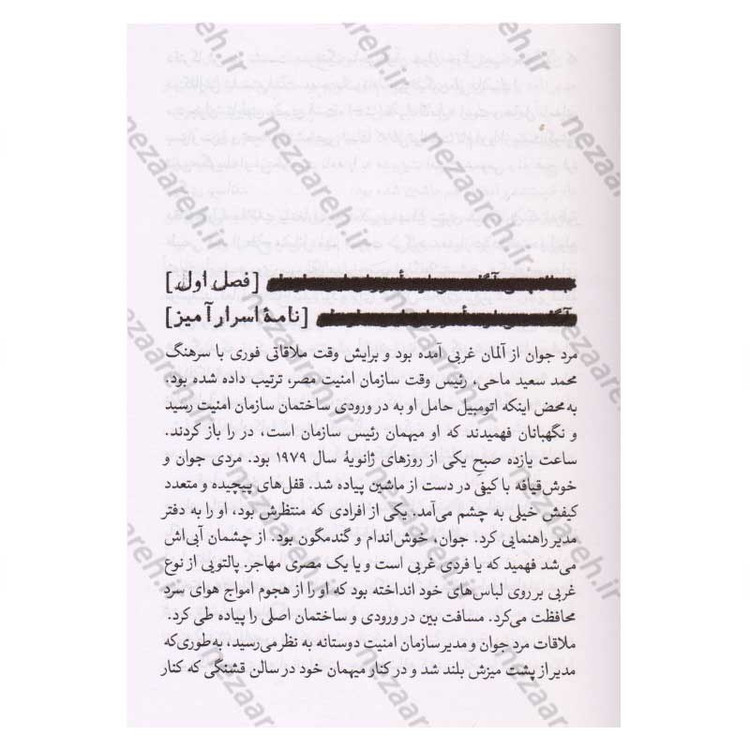 [فصل اول]
[نامهٔ اسرارآمیز]
مرد جوان از آلمان غربی آمده بود و برایش وقت ملاقاتی فوری با سرهنگ
محمد سعید ماحی، رئیس وقت سازمان امنیت مصر، ترتیب داده شده بود.
به‌محض اینکه اتومبیل حامل او به در ورودی ساختمان سازمان امنیت رسید
و نگهبانان فهمیدند که او میهمان رئیس سازمان است، در را باز کردند.
ساعت یازده صبحِ یکی از روزهای ژانویهٔ سال ۱۹۷۹ بود. مردی جوان و
خوش‌قیافه با کیفی در دست از ماشین پیاده شد. قفل‌های پیچیده و متعدد
کیفش خیلی به چشم می‌آمد. یکی از افرادی که منتظرش بود، او را به دفتر
مدیر راهنمایی کرد. جوان، خوش‌اندام و گندمگون بود. از چشمان آبی‌اش
می‌شد فهمید که یا فردی غربی است و یا یک مصری مهاجر. پالتویی از نوع
غربی بر روی لباس‌های خود انداخته بود که او را از هجوم امواج هوای سرد
محافظت می‌کرد. مسافت بین در ورودی و ساختمان اصلی را پیاده طی کرد.
ملاقات مرد جوان و مدیر سازمان امنیت دوستانه به نظر می‌رسید، به‌طوری‌که
مدیر از پشت میزش بلند شد و در کنار میهمان خود در سالن قشنگی که کنار
nezaareh.ir